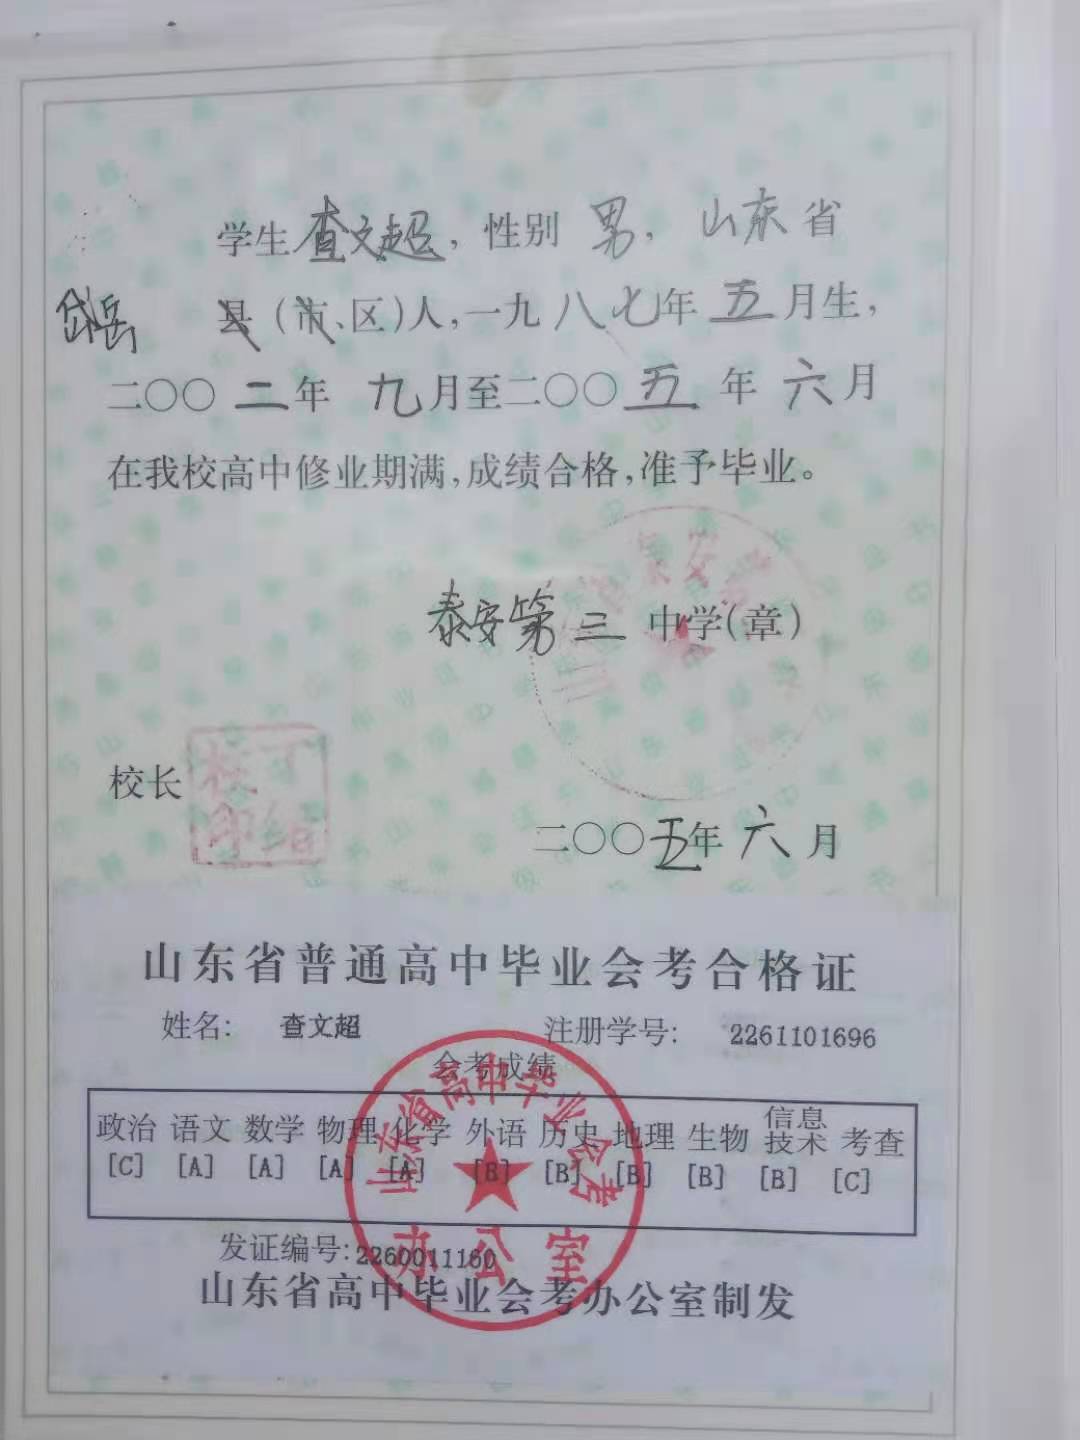 学生查文超，性别 男，山东省
岱岳 县（市、区）人，一九八七年 五月生，
二〇〇二年 九月至二〇〇五年 六月
在我校高中修业期满，成绩合格，准予毕业。
泰安第三中学（章）
校长
二〇〇五年 六月
山东省普通高中毕业会考合格证
姓名: 查文超 注册学号: 2261101696
会考成绩
政治 语文 数学 物理 化学 外语 历史 地理 生物 信息技术 考查
[C] [A] [A] [A] [A] [B] [B] [B] [B] [B] [C]
发证编号: 2260011160
山东省高中毕业会考办公室制发
山东省高中毕业会考
办公室